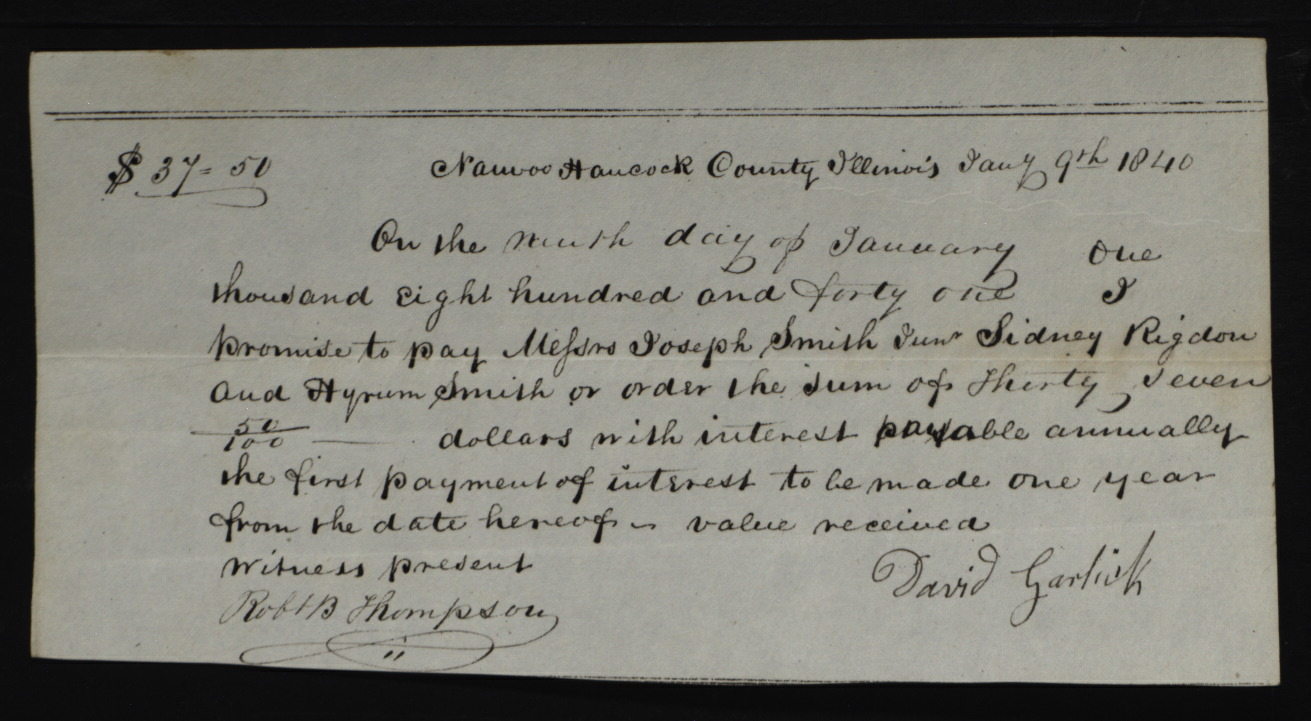 $ 37= 50 Nauvoo Hancock County Illinois Jany 9th 1840
On the ninth day of January One
thousand Eight hundred and forty one I
promise to pay Messrs Joseph Smith Junr Sidney Rigdon
and Hyrum Smith or order the sum of Thirty Seven
50/100 — dollars with interest payable annually
the first payment of interest to be made one year
from the date hereof – value received
Witness present David Garlick
Robt B Thompson